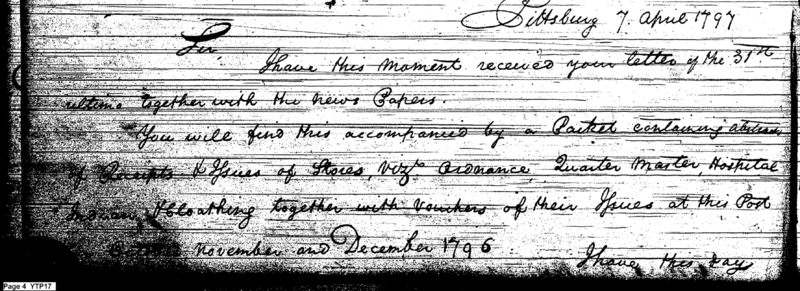 Pittsburg 7 April 1797
Sir
I have this Moment received your letter of the 31st
ultimo together with the News Papers.
You will find this accompanied by a Packet containing abstracts
of Receipts & Issues of Stores, Vizt Ordnance, Quarter Master, Hospital
Indian, & Cloathing together with Vouchers of their Issues at this Post
November and December 1796
I have this day
Page 4 YTP17